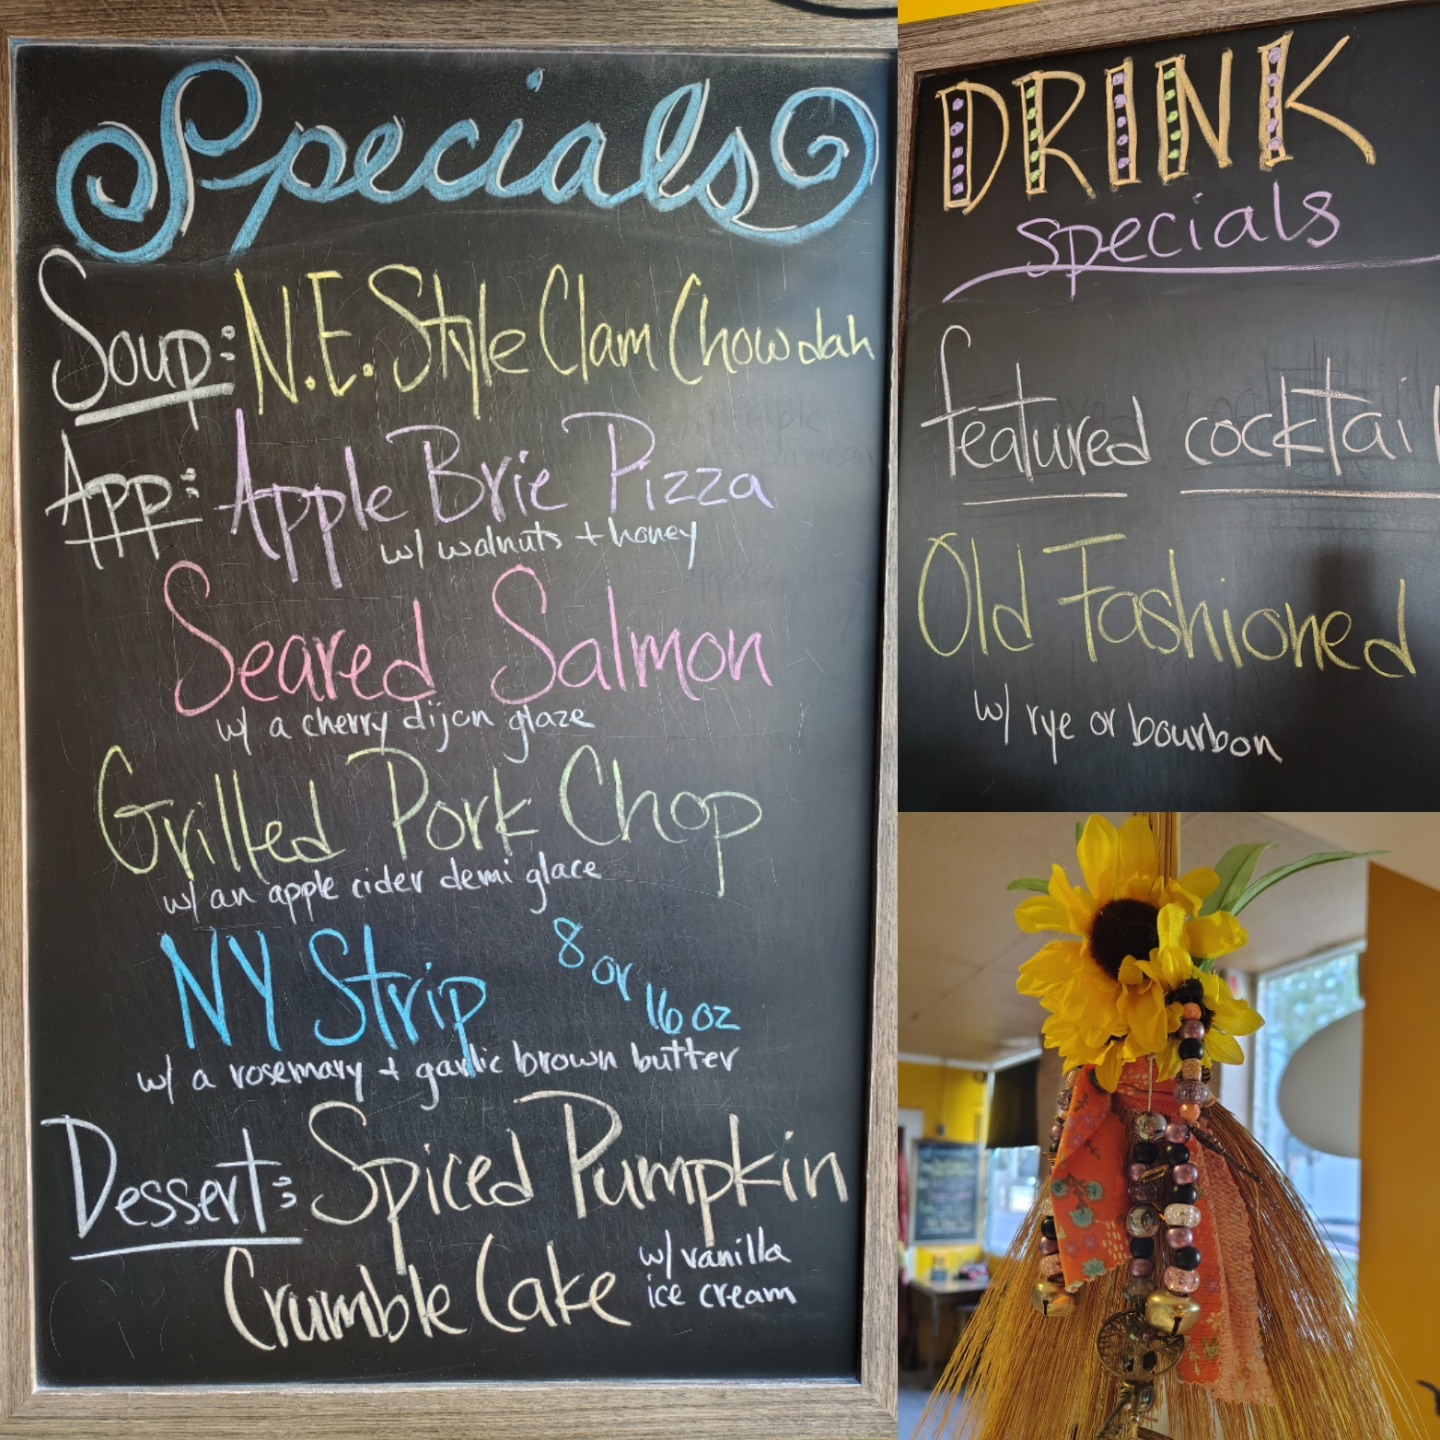 Specials
Soup: N.E. Style Clam Chowdah
App: Apple Brie Pizza
w/ walnuts + honey
Seared Salmon
w/ a cherry dijon glaze
Grilled Pork Chop
w/ an apple cider demi glace
NY Strip 8 or 16 oz
w/ a rosemary + garlic brown butter
Dessert: Spiced Pumpkin
Crumble Cake w/ vanilla
ice cream
DRINK
specials
featured cocktail
Old Fashioned
w/ rye or bourbon